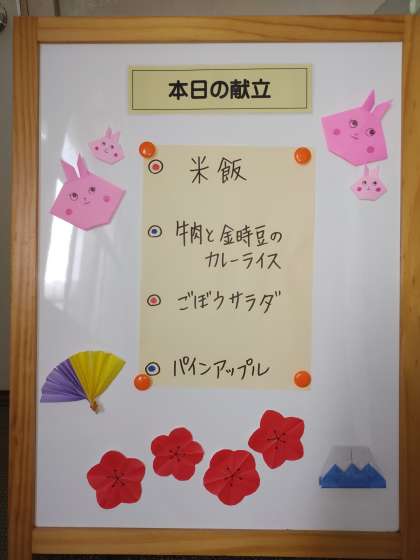 本日の献立
米飯
牛肉と金時豆の
カレーライス
ごぼうサラダ
パインアップル